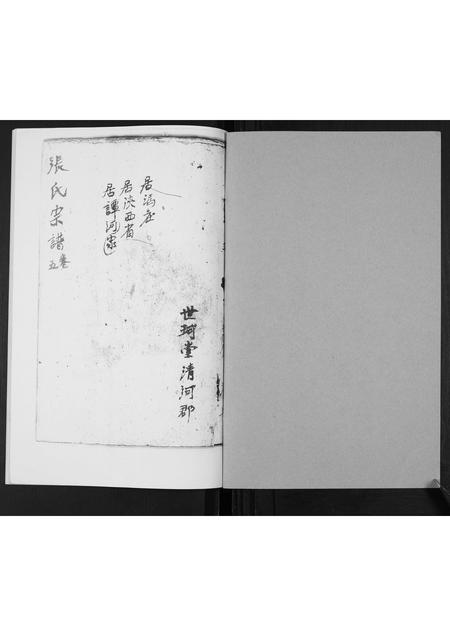 世珂堂清河郡
居馮庄
居陝西省
居譚河家
張氏宗譜
卷五